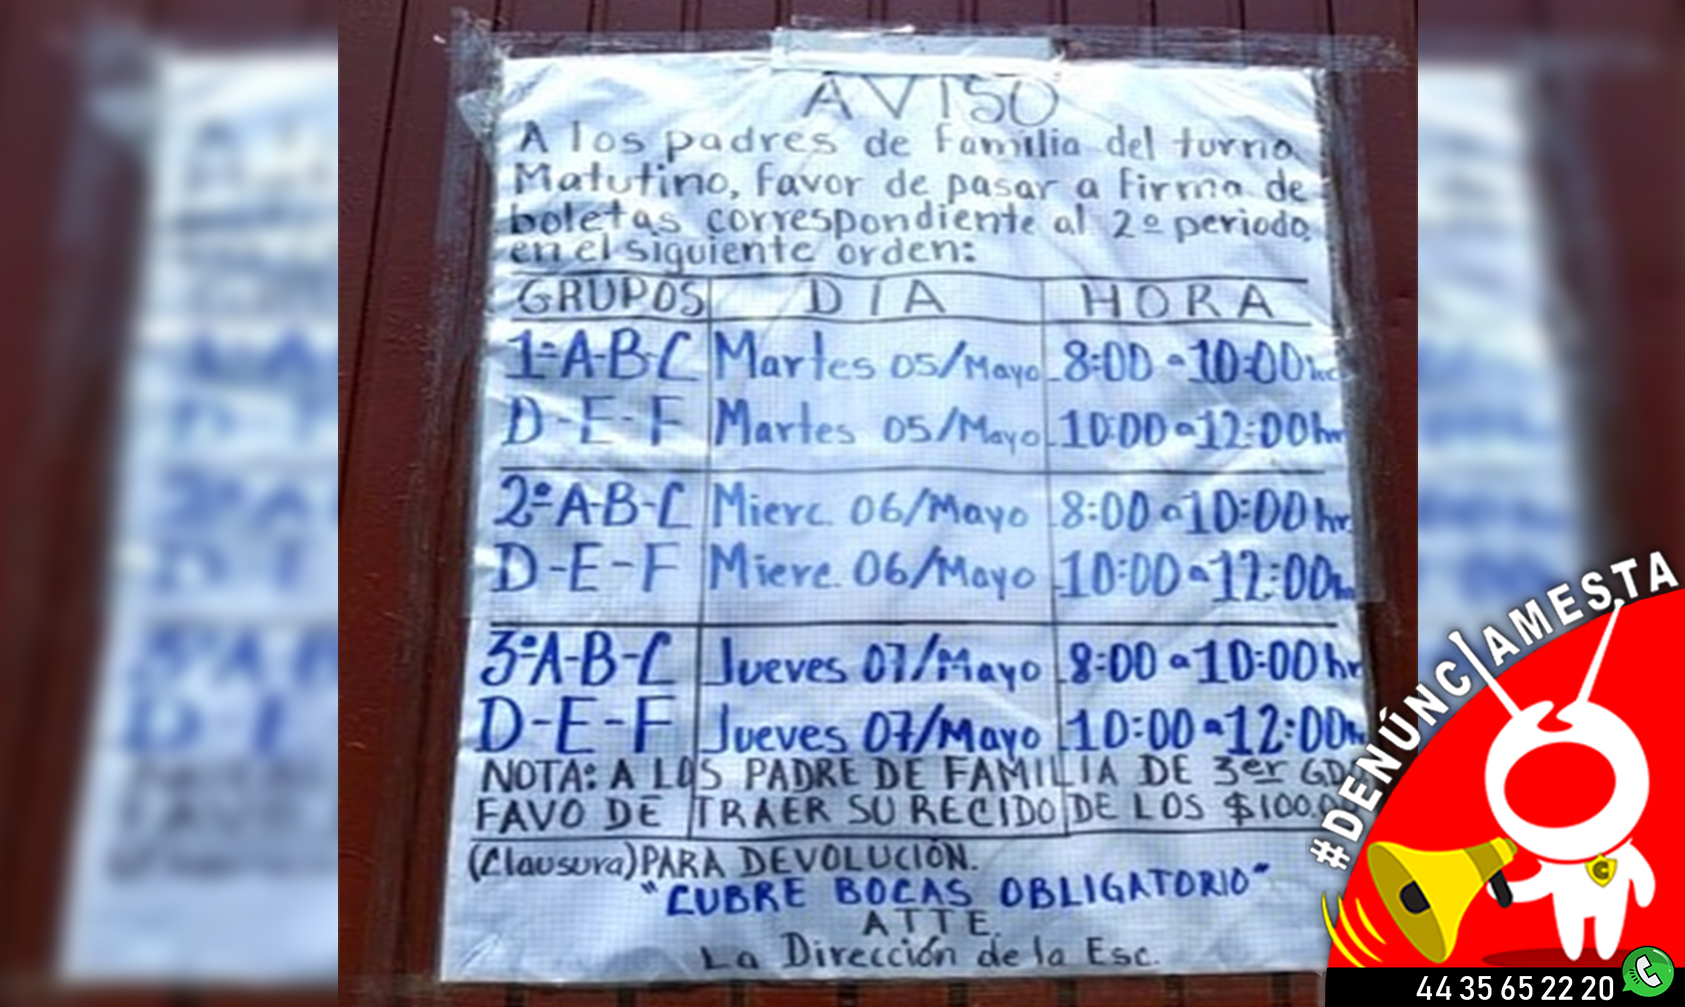 AVISO
A los padres de familia del turno
Matutino, favor de pasar a firma de
boletas correspondiente al 2º periodo,
en el siguiente orden:
GRUPOS DÍA HORA
1ºA-B-C Martes 05/Mayo 8:00 a 10:00hrs
D-E-F Martes 05/Mayo 10:00 a 12:00hr
2ºA-B-C Mierc. 06/Mayo 8:00 a 10:00 hr
D-E-F Mierc. 06/Mayo 10:00 a 12:00h
3ºA-B-C Jueves 07/Mayo 8:00 a 10:00 hr
D-E-F Jueves 07/Mayo 10:00 a 12:00h
NOTA: A LOS PADRE DE FAMILIA DE 3er GD
FAVO DE TRAER SU RECIDO DE LOS $100.0
(Clausura) PARA DEVOLUCIÓN.
"CUBRE BOCAS OBLIGATORIO"
ATTE.
La Dirección de la Esc.
#DENÚNCIAMESTA
C
44 35 65 22 20